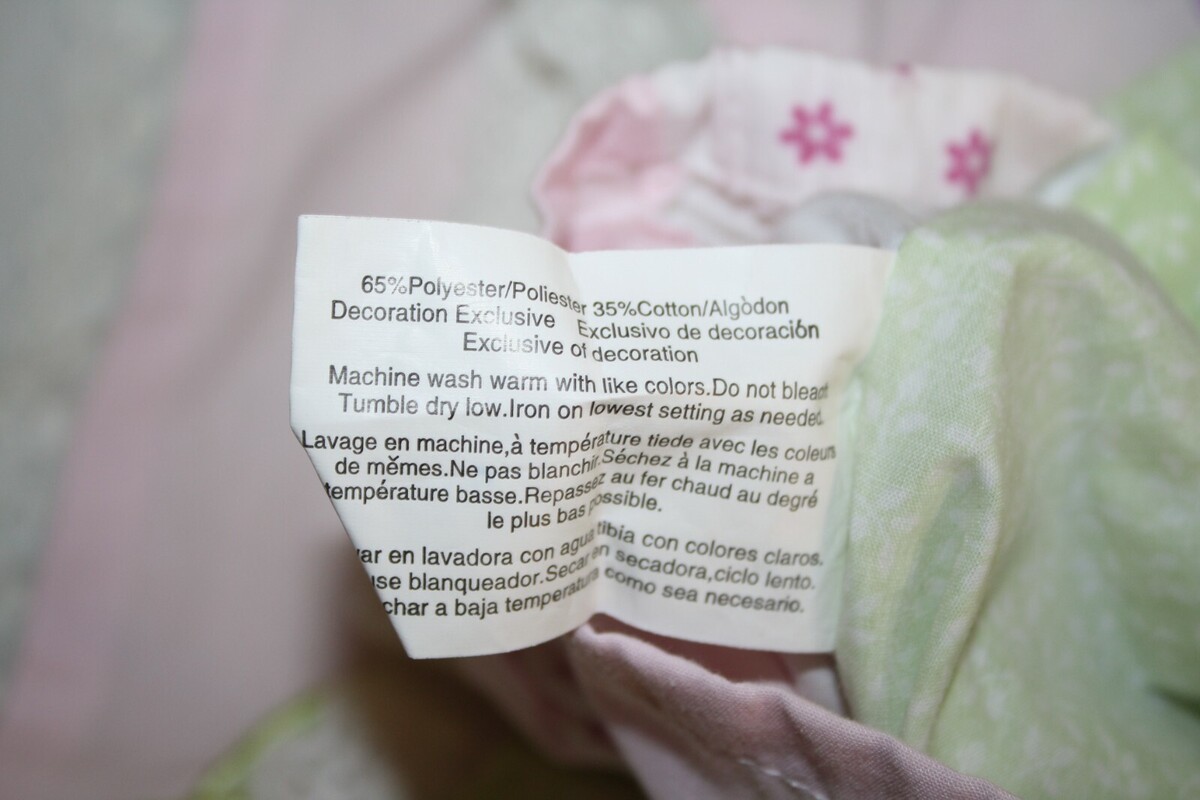 65%Polyester/Poliester 35%Cotton/Algòdon
Decoration Exclusive Exclusivo de decoración
Exclusive of decoration
Machine wash warm with like colors.Do not bleach
Tumble dry low.Iron on lowest setting as needed.
Lavage en machine,à température tiede avec les coleurs
de měmes.Ne pas blanchir.Séchez à la machine a
température basse.Repassez au fer chaud au degré
le plus bas possible.
var en lavadora con agua tibia con colores claros.
use blanqueador.Secar en secadora,ciclo lento.
char a baja temperatura como sea necesario.